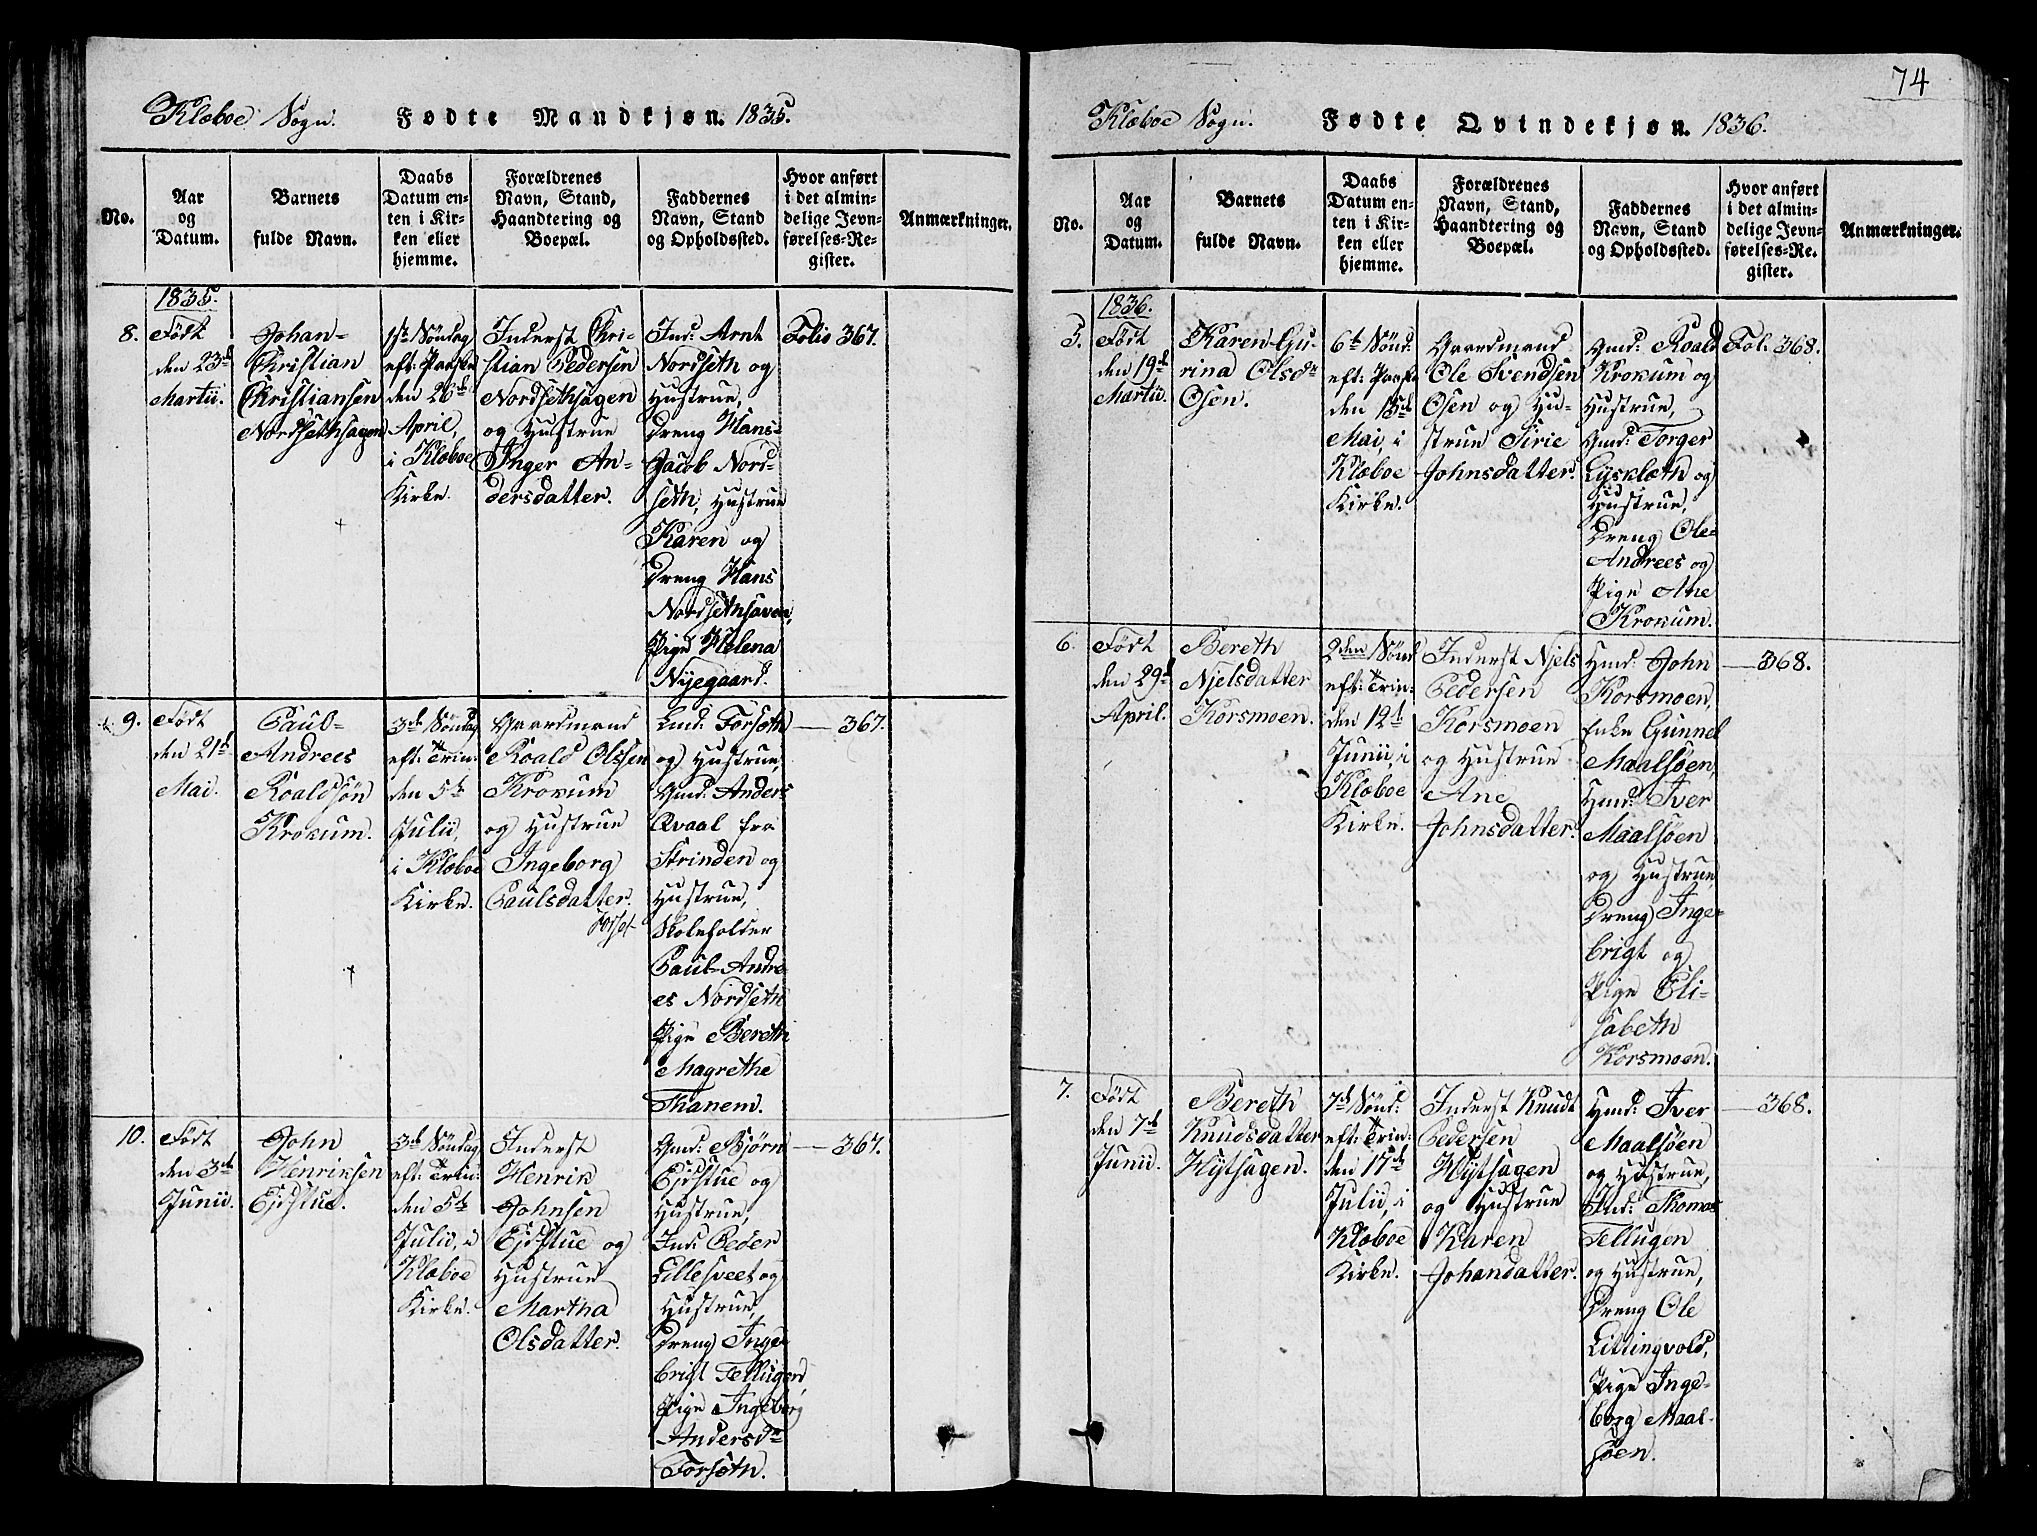 Klæboe Sogn. Fødte Mandkjøn. 1835.
No.
Aar
og
Datum.
Barnets
fulde Navn.
Daabs
Datum en-
ten i Kir-
ken eller
hjemme.
Forældrenes
Navn, Stand,
Haandtering og
Boepæl.
Faddernes
Navn, Stand
og Opholdssted.
Hvor anført
i det almin-
delige Jevn-
førelses-Re-
gister.
Anmærkninger.
1835.
8.
Født
den 23de
Martii.
Johan-
Christian
Christiansen
Nordsethhagen
1ste Søndag
eft: Paaske
den 26de
April,
i Klæboe
Kirke.
Inderst Chri-
stian Pedersen
Nordsethhagen
og Hustrue
Inger An-
dersdatter.
Ind: Arnt
Nordseth og
Hustrue,
Dreng Hans-
Jacob Nord-
seth, Hustrue
Karen og
Dreng Hans
Pige Helena
Nyegaard.
Folio 367.
9.
Født
den 21de
Mai.
Paul-
Andreas
Roaldsøn
Krokum.
3de Søndag
eft: Trin:
den 5te
Julii,
i Klæboe
Kirke.
Gaardmand
Roald Olssen
Krokum
og Hustrue
Ingeborg
Paulsdatter.
Forset
Lmd: Forseth
og Hustrue,
Gmd: Anders
Qvaal fra
Strinden og
Hustrue,
Skoleholder
Paul-Andre-
es Nordseth
Pige Bereth
Magrethe
Thanem.
— 367.
10.
Født
den 3de
Junii.
John
Henriksen
Ejdstue.
3de Søndag
eft: Trin:
den 5te
Julii, i
Klæboe
Kirke.
Inderst
Henrik
Johnsen
Ejdstue og
Hustrue
Martha
Olsdatter.
Gmd: Bjørn
Ejdstue og
Hustrue,
Ind: Peder
Lillesveet og
Hustrue,
Dreng Inge-
brigt Tellugen,
Pige Ingeborg
Andersdr
Forseth.
— 367.
74
Klæboe Sogn. Fødte Qvindekjøn. 1836.
No.
Aar
og
Datum.
Barnets
fulde Navn.
Daabs
Datum en-
ten i Kir-
ken eller
hjemme.
Forældrenes
Navn, Stand,
Haandtering og
Boepæl.
Faddernes
Navn, Stand
og Opholdssted.
Hvor anført
i det almin-
delige Jevn-
førelses-Re-
gister.
Anmærkninger.
1836.
5.
Født
den 19de
Martii.
Karen-Gu-
rina Olsdr
Osen.
6te Sønd:
eft: Paaske
den 15de
Mai, i
Klæboe
Kirke.
Gaardmand
Ole Svendsen
Osen og Hu-
strue Sirie
Johnsdatter.
Gmd: Roald
Krokum og
Hustrue,
Gmd: Torger
Lysklæth og
Hustrue,
Dreng Ole-
Andrees og
Pige Ane
Krokum.
Fol. 368.
6.
Født
den 29de
April.
Bereth
Njelsdatter
Korsmoen.
2den Sønd
eft: Trin:
den 12te
Junii, i
Klæboe
Kirke.
Inderst Njels
Pedersen
Korsmoen
og Hustrue
Ane
Johnsdatter.
Hmd: John
Korsmoen,
Enke Gunnel
Maalsøen,
Hmd: Iver
Maalsøen
og Hustrue,
Dreng Inge-
brigt og
Pige Eli-
sabeth
Korsmoen.
— 368.
7.
Født
den 7de
Junii.
Bereth
Knudsdatter
Hythagen.
7de Sønd:
eft: Trin:
den 17de
Julii, i
Klæboe
Kirke.
Inderst Knudt
Pedersen
Hytshagen
og Hustrue
Karen
Johandatter.
Hmd: Iver
Maalsøen
og Hustrue,
Ind: Thomas
Tellugen
og Hustrue,
Dreng Ole
Littingvold,
Pige Inge-
borg Maal-
søen.
— 368.